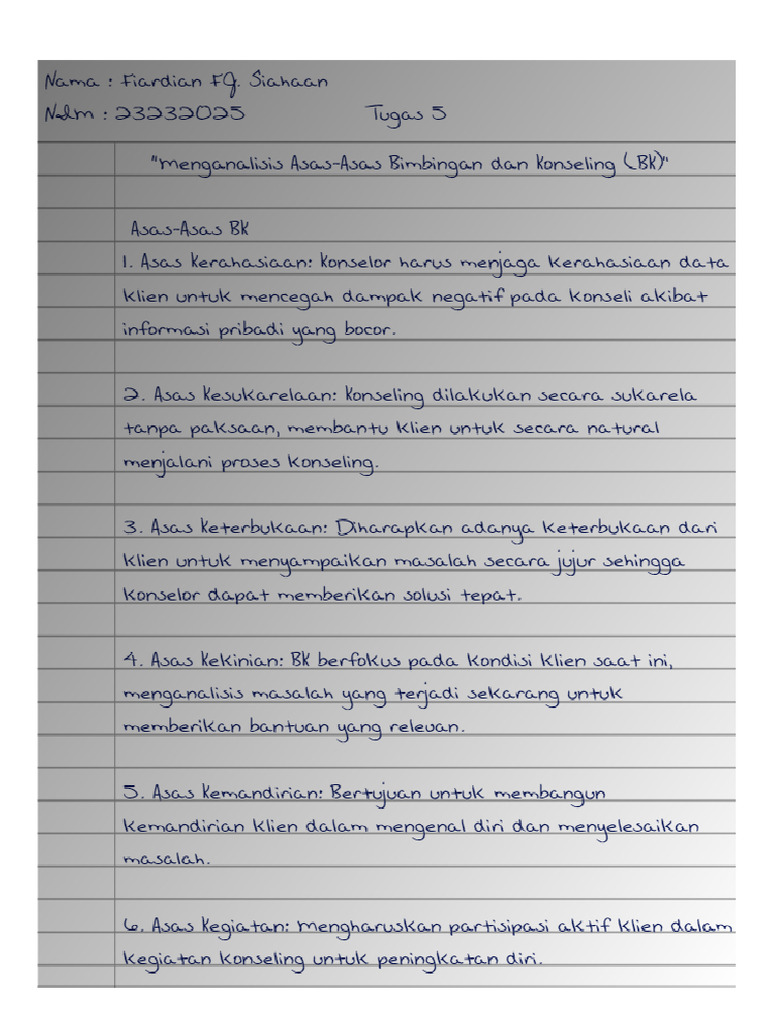 Nama : Fiardian FG. Siahaan
NIm : 23232025 Tugas 5
"Menganalisis Asas-Asas Bimbingan dan Konseling (BK)"
Asas-Asas BK
1. Asas Kerahasiaan: Konselor harus menjaga kerahasiaan data
klien untuk mencegah dampak negatif pada konseli akibat
informasi pribadi yang bocor.
2. Asas Kesukarelaan: Konseling dilakukan secara sukarela
tanpa paksaan, membantu klien untuk secara natural
menjalani proses konseling.
3. Asas Keterbukaan: Diharapkan adanya keterbukaan dari
klien untuk menyampaikan masalah secara jujur sehingga
konselor dapat memberikan solusi tepat.
4. Asas Kekinian: BK berfokus pada kondisi klien saat ini,
menganalisis masalah yang terjadi sekarang untuk
memberikan bantuan yang relevan.
5. Asas Kemandirian: Bertujuan untuk membangun
kemandirian klien dalam mengenal diri dan menyelesaikan
masalah.
6. Asas Kegiatan: Mengharuskan partisipasi aktif klien dalam
kegiatan konseling untuk peningkatan diri.